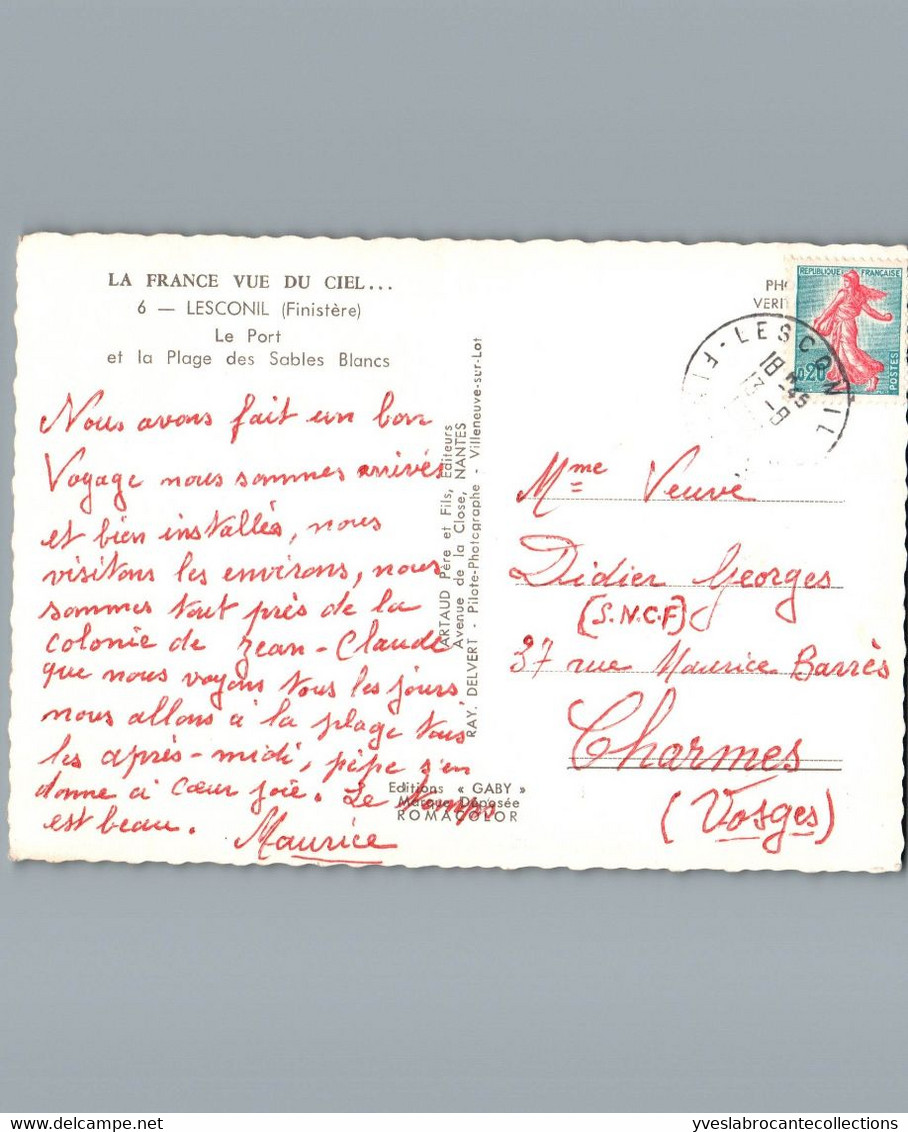 LA FRANCE VUE DU CIEL...
6 — LESCONIL (Finistère)
Le Port
et la Plage des Sables Blancs
Nous avons fait un bon
Voyage nous sommes arrivés
et bien installés, nous
visitons les environs, nous
sommes tout près de la
colonie de Jean-Claude
que nous voyons tous les jours
nous allons à la plage tous
les après-midi, pépé s'en
donne à cœur joie. Le temps
est beau.
Maurice
ARTAUD Père et Fils, Editeurs
Avenue de la Close, NANTES
RAY. DELVERT - Pilote-Photographe - Villeneuve-sur-Lot
Editions « GABY »
Marque Déposée
ROMACOLOR
PHO
VERIT
REPUBLIQUE FRANÇAISE
0,20
POSTES
LESCONIL - FI
18 H 45
13 - 8
Mme Veuve
Didier Georges
(S.N.C.F)
37 rue Maurice Barrès
Charmes
(Vosges)
yveslabrocantecollections